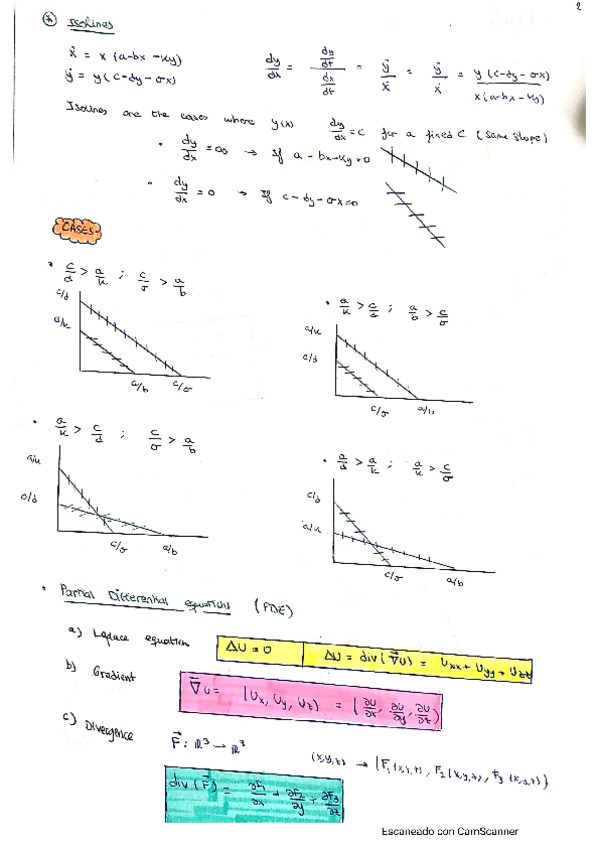 2
* Isolines
ẋ = x (a-bx - ky)
ẏ = y (c-dy - σx)
dy/dx = (dy/dt)/(dx/dt) = ẏ/ẋ = ẏ/ẋ = y (c-dy - σx)/x (a-bx - ky)
Isolines are the cases where y(x) dy/dx = c for a fixed c (same slope)
• dy/dx = ∞ → If a - bx - ky = 0
• dy/dx = 0 → If c - dy - σx = 0
CASES
• c/d > a/k ; c/σ > a/b
c/d
a/k
a/b c/σ
• a/k > c/d ; a/b > c/σ
a/k
c/d
c/σ a/b
• a/k > c/d ; c/σ > a/b
a/k
c/d
c/σ a/b
• a/d > a/k ; a/k > c/σ
c/d
a/k
c/σ a/b
• Partial Differential equations (PDE)
a) Laplace equation ΔU = 0 ΔU = div (∇⃗U) = Uxx + Uyy + Uzz
b) Gradient ∇⃗U = (Ux, Uy, Uz) = (∂U/∂x, ∂U/∂y, ∂U/∂z)
c) Divergence F⃗ : ℝ³ → ℝ³
(x,y,z) → (F₁(x,y,z), F₂(x,y,z), F₃(x,y,z))
div (F⃗) = ∂F₁/∂x + ∂F₂/∂y + ∂F₃/∂z
Escaneado con CamScanner